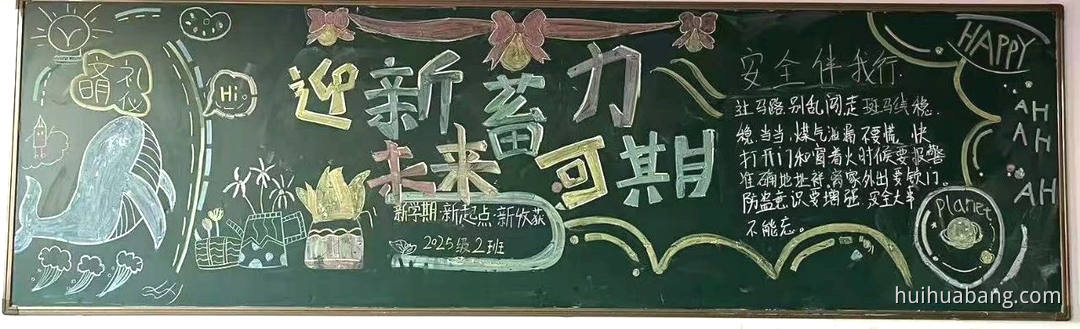 萌礼仪
Hi
迎新蓄力
未来可期
新学期 新起点 新收获
2025级2班
安全伴我行.
过马路,别乱闯,走斑马线,稳.
稳,当当,煤气泄漏不要慌,快
打开门和窗,着火时候要报警
准确地址待,离家外出要锁门
防盗意识要增强,安全大事
不能忘。
HAPPY
AH
AH
AH
planet
huihuabang.com